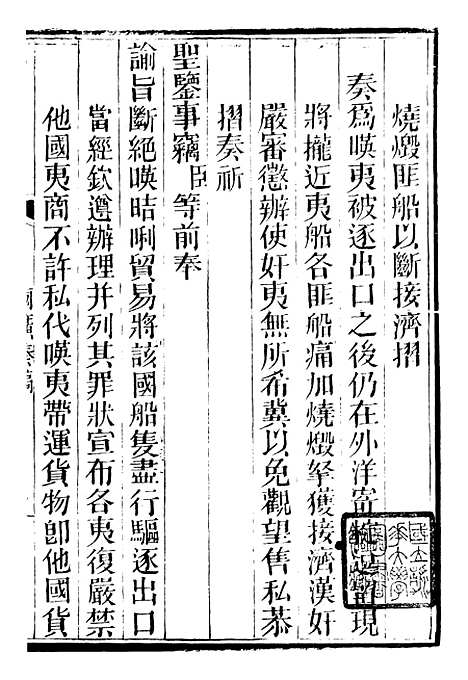 燒燬匪船以斷接濟摺
奏爲暎夷被逐出口之後仍在外洋寄椗現
將攏近夷船各匪船痛加燒燬拏獲接濟漢奸
嚴審懲辦使奸夷無所希冀以免觀望售私恭
摺奏祈
聖鑒事竊臣等前奉
諭旨斷絕暎咭唎貿易將該國船隻盡行驅逐出口
當經欽遵辦理并列其罪狀宣布各夷復嚴禁
他國夷商不許私代暎夷帶運貨物卽他國貨
兩廣奏稿